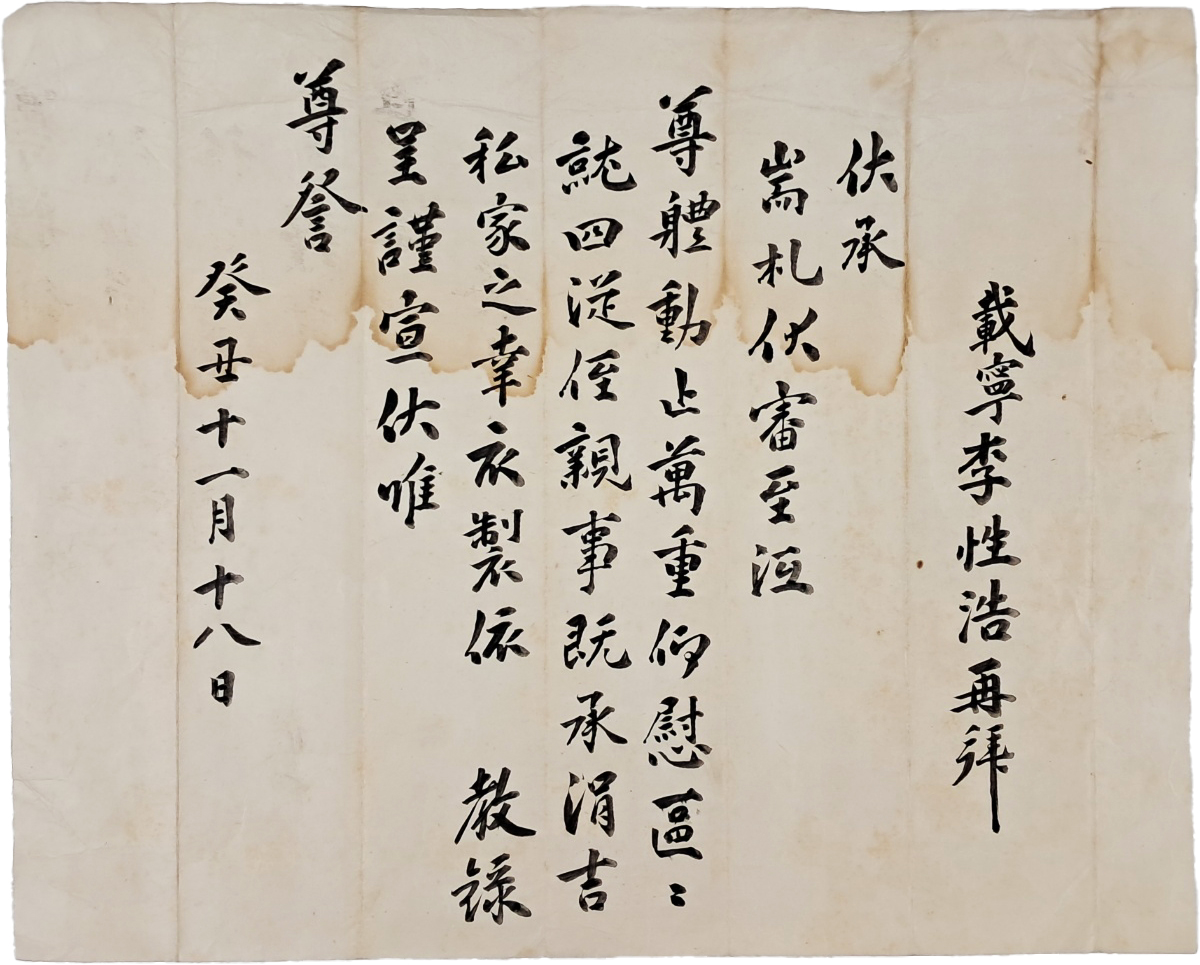 載寧李性浩再拜
伏承
耑札伏審至沍
尊體動止萬重仰慰區〻
就四從侄親事既承涓吉
私家之幸衣製依 教錄
呈謹宣伏惟
尊詧
癸丑十一月十八日